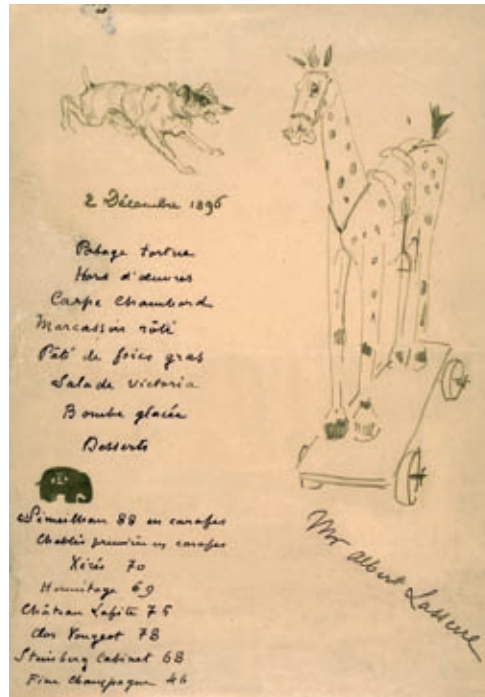 2 Décembre 1896
Potage tortue
Hors d'œuvres
Carpe Chambord
Marcassin rôti
Pâté de foies gras
Salade Victoria
Bombe glacée
Desserts
88 en carafes
Chablis première en carafes
Xérès 70
Hermitage 69
Château Lafite 75
Clos Vougeot 78
Steinberg Cabinet 68
Fine Champagne 44
Mr Albert Lasserre